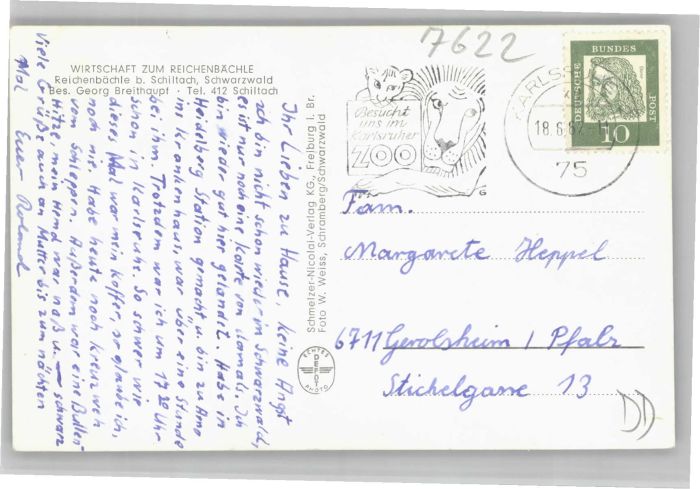 7622
WIRTSCHAFT ZUM REICHENBÄCHLE
Reichenbächle b. Schiltach, Schwarzwald
Bes. Georg Breithaupt · Tel. 412 Schiltach
Besucht
uns im
Karlsruher
ZOO
G
KARLSR
18.6.62
75
DEUTSCHE
BUNDES
POST
10
Schmelzer-Nicolai-Verlag KG., Freiburg i. Br.
Foto W. Weiss, Schramberg/Schwarzwald
ECHTES
DEFOT
PHOTO
Ihr Lieben zu Hause, keine Angst
ich bin nicht schon wieder im Schwarzwald,
es ist nur noch eine Karte von damals. Ich
bin wieder gut hier gelandet. Habe in
Heidelberg Station gemacht u. bin zu Arno
ins Krankenhaus, war über eine Stunde
bei ihm. Trotzdem war ich um 17 Uhr
schon in Karlsruhe. So schwer wie
dieses Mal war mein Koffer, so glaube ich,
noch nie. Habe heute noch Kreuzweh
vom Schleppen. Außerdem war eine Bullen-
Hitze, mein Hemd war naß u. schwarz
Viele Grüße auch an Mutter bis zum nächsten
Mal Euer Roland
Fam.
Margarete Heppel
6711 Gerolsheim / Pfalz
Stichelgasse 13
DD